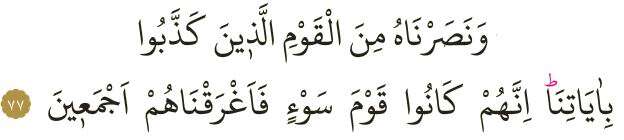 وَنَصَرْنَاهُ مِنَ الْقَوْمِ الَّذ۪ينَ كَذَّبُوا
بِاٰيَاتِنَاۜ اِنَّهُمْ كَانُوا قَوْمَ سَوْءٍ فَاَغْرَقْنَاهُمْ اَجْمَع۪ينَ ٧٧